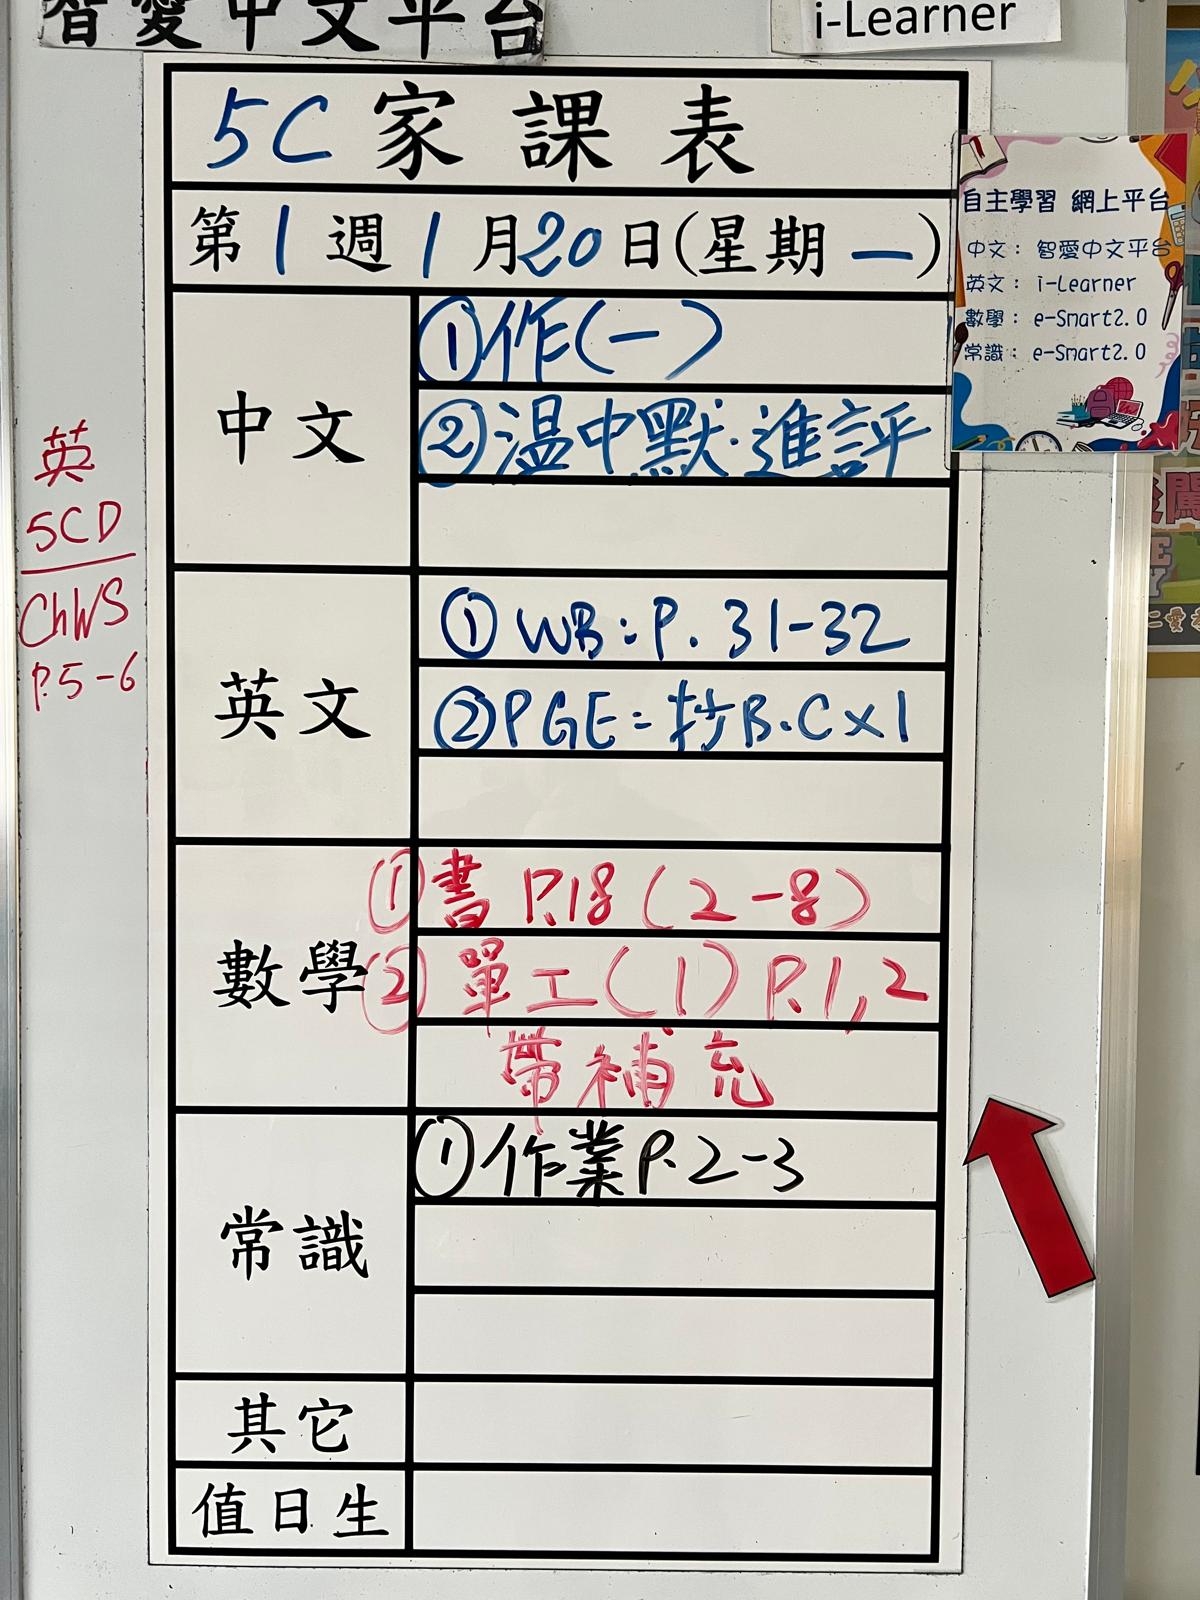 智愛中文平台
i-Learner
5C 家課表
第1週1月20日(星期一)
自主學習 網上平台
中文： 智愛中文平台
英文： i-Learner
數學： e-Smart2.0
常識： e-Smart2.0
中文
①作(一)
②温中默.進評
英
5CD
ChWS
P.5-6
英文
①WB:P.31-32
②PGE=抄B.C×1
數學
①書P.18(2-8)
②單工(1)P.1,2
帶補充
常識
①作業P.2-3
其它
值日生